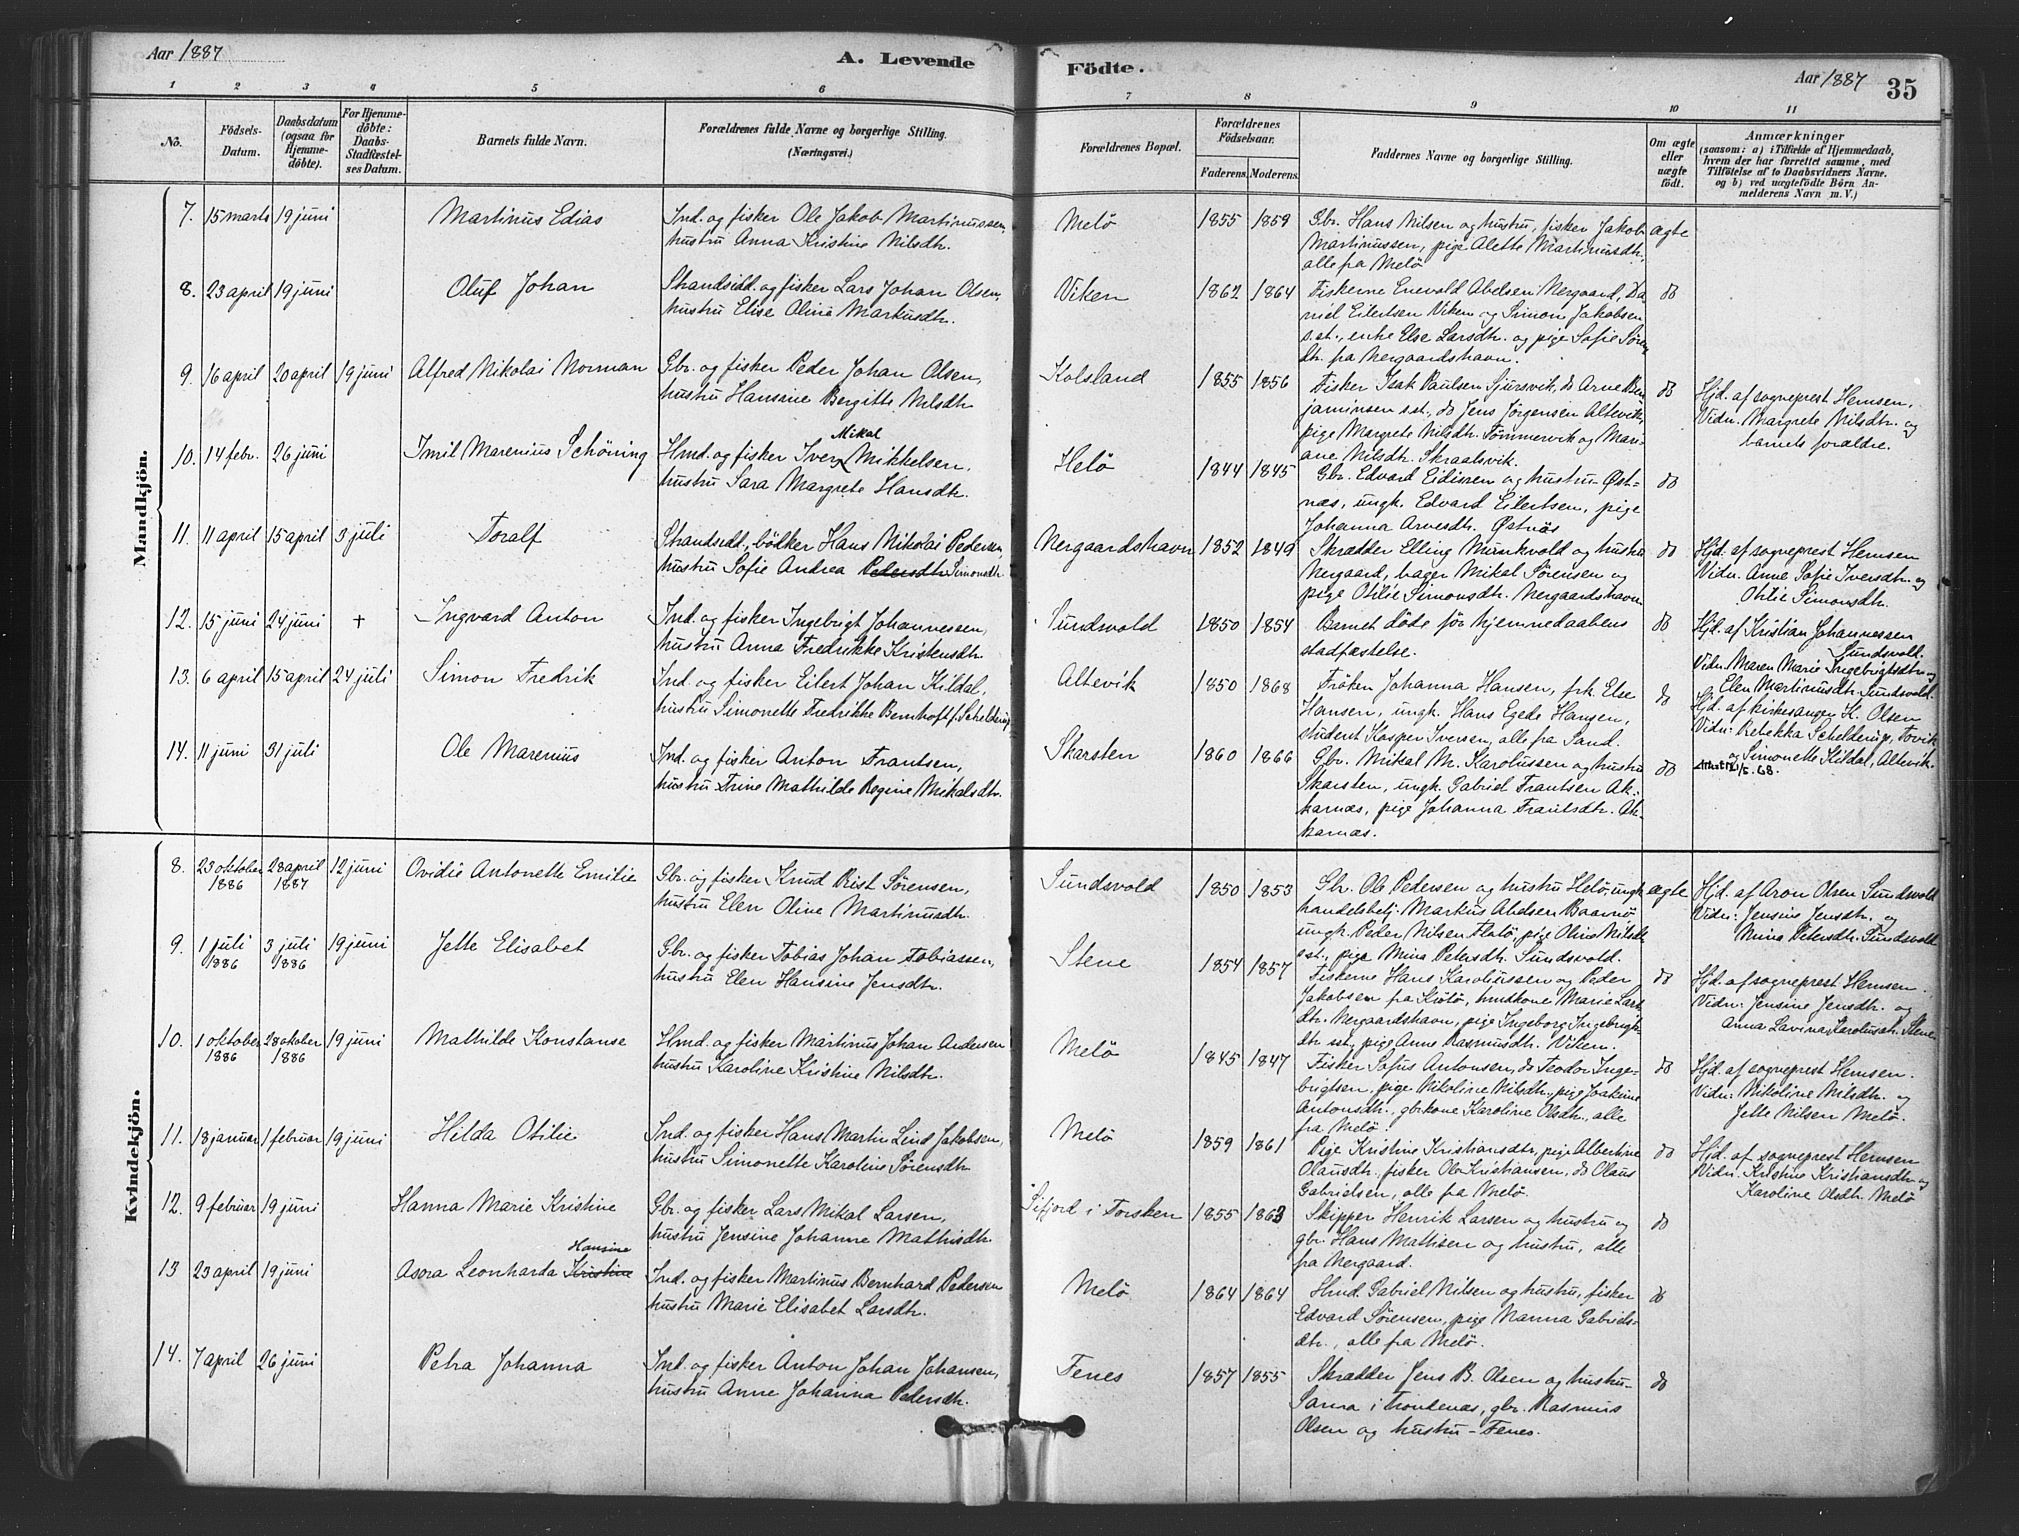 Aar 1887
A. Levende
Födte.
Aar 1887
35
1 2 3 4 5 6 7 8 9 10 11
No.
Födsels-Datum.
Daabsdatum (ogsaa for Hjemme-döbte).
For Hjemme-döbte: Daabs-Stadfæstel-ses Datum.
Barnets fulde Navn.
Forældrenes fulde Navne og borgerlige Stilling. (Næringsvei.)
Forældrenes Bopæl.
Forældrenes Födselsaar.
Faderens. Moderens.
Faddernes Navne og borgerlige Stilling.
Om ægte eller uægte födt.
Anmærkninger
(saasom: a) i Tilfælde af Hjemmedaab,
hvem der har forrettet samme, med
Tilföielse af to Daabsvidners Navne.
og b) ved uægtefödte Börn An-
melderens Navn m. V.)
Mandkjön.
7. 15 marts 19 juni Martinus Edias
Ind. og fisker Ole Jakob Martinussen,
hustru Anna Kristine Nilsdtr.
Melö 1855 1859
Gbr. Hans Nilsen og hustru, fisker Jakob
Martinussen, pige Alette Martinusdtr.,
alle fra Melö
ægte
8. 23 april 19 juni Oluf Johan
Strandsidd. og fisker Lars Johan Olsen,
hustru Elise Oline Markusdtr.
Viken 1862 1864
Fiskerne Enevold Abelsen Nergaard, Da-
niel Eilertsen Viken og Simon Jakobsen
s.st., enke Else Larsdtr. og pige Sofie Sören
dtr. fra Nergaardshavn.
do
9. 16 april 20 april 19 juni Alfred Nikolai Norman
Gbr. og fisker Peder Johan Olsen,
hustru Hansine Bergitte Nilsdtr.
Kolsland 1855 1856
Fisker Isak Paulsen Sjursvik, do Arne Ben
jaminsen s.st., do Jens Jörgensen Altevik,
pige Margrete Nilsdtr. Tömmervik og Mari-
ane Nilsdtr. Skraalsvik.
do
Hjd. af sogneprest Hemsen.
Vidn. Margrete Nilsdtr. og
barnets forældre.
10. 14 febr. 26 juni Imil Marenius Schöning
Mikal
Hmd. og fisker Iver Mikkelsen,
hustru Sara Margrete Hansdtr.
Helö 1844 1845
Gbr. Edvard Eidissen og hustru - Øst-
næs, ungk. Edvard Eilertsen, pige
Johanna Arvesdtr. Østnæs
do
11. 11 april 15 april 3 juli Toralf
Strandsidd., bödker Hans Nikolai Pedersen,
hustru Sofie Andrea Pedersdtr. Simonsdtr.
Nergaardshavn 1852 1849
Skrædder Elling Munkvold og hustru
Nergaard, bager Mikal Sörensen og
pige Otilie Simonsdtr. Nergaardshavn
do
Hjd. af sogneprest Hemsen
Vidn. Anne Sofie Iversdtr. og
Otilie Simonsdtr.
12. 15 juni 24 juni + Ingvard Anton
Ind. og fisker Ingebrigt Johannessen,
hustru Anna Fredrikke Kristensdtr.
Sundsvold 1850 1854
Barnet döde för hjemmedaabens
stadfæstelse.
do
Hjd. af Kristian Johannessen
Sundsvold.
Vidn. Maren Marie Ingebrigtsdtr. og
Elen Martinusdtr. Sundsvold.
13. 6 april 15 april 24 juli Simon Fredrik
Ind. og fisker Eilert Johan Kildal,
hustru Simonette Fredrikke Bernhoft f. Schelderup
Altevik 1850 1868
Fröken Johanna Hansen, frk. Else
Hansen, ungk. Hans Egede Hansen,
student Kasper Iversen, alle fra Sand.
do
Hjd. af kirkesanger K. Olsen
Vidn: Rebekka Schelderup, Tovik
og Simonette Kildal, Altevik.
14. 11 juni 31 juli Ole Marenius
Ind. og fisker Anton Frantsen,
hustru Trine Mathilde Regine Mikalsdtr.
Skarsten 1860 1866
Gbr. Mikal M. Karolussen og hustru
Skarsten, ungk. Gabriel Frantsen Ak-
karnæs, pige Johanna Frantsdtr. Ak-
karnæs.
do
/5. 68.
Kvindekjön.
8. 23 oktober 1886 28 april 1887 12 juni Ovidie Antonette Emilie
Gbr. og fisker Knud Rist Sörensen,
hustru Elen Oline Martinusdtr.
Sundsvold 1850 1853
Gbr. Ole Pedersen og hustru Helö, ungk.
handelsbetj. Markus Abelsen Baarnö,
ungk. Peder Nilsen Flatö, pige Oline Nilsdtr.
s.st., pige Mina Petersdtr. Sundsvold.
ægte
Hjd. af Aron Olsen Sundsvold
Vidn: Jensine Jensdtr. og
Mina Petersdtr. Sundsvold
9. 1 juli 1886 3 juli 1886 19 juni Jette Elisabet
Gbr. og fisker Tobias Johan Tobiassen,
hustru Elen Hansine Jensdtr.
Stene 1854 1857
Fiskerne Hans Karolussen og Peder
Jakobsen fra Kjötö, hmdkone Marie Lars
dtr. Nergaardshavn, pige Ingeborg Ingebrigts
dtr. sst., pige Anne Rasmusdtr. Viken.
do
Hjd. af sogneprest Hemsen.
Vidn: Jensine Jensdtr. og
Anna Lavina Karolusdtr. Stene
10. 1 oktober 1886 28 oktober 1886 19 juni Mathilde Konstanse
Hmd. og fisker Martinus Johan Andersen
hustru Karoline Kristine Nilsdtr.
Melö 1845 1847
Fisker Sofus Antonsen, do Teodor Inge-
brigtsen, pige Nikoline Nilsdtr., pige Joakine
Antonsdtr., gbrkone Karoline Olsdtr., alle
fra Melö.
do
Hjd. af sogneprest Hemsen.
Vidn: Nikoline Nilsdtr. og
Jette Nilsen Melö.
11. 18 januar 1 februar 19 juni Hilda Otilie
Ind. og fisker Hans Martin Lind Jakobsen,
hustru Simonette Karoline Sörensdtr.
Melö 1859 1861
Pige Kristine Kristiansdtr., pige Albertine
Olausdtr. fisker Ole Kristiansen, do Olaus
Gabrielsen, alle fra Melö.
do
Hjd. af sogneprest Hemsen
Vidn. Kristine Kristiansdtr. og
Karoline Olsdtr. Melö
12. 9 februar 19 juni Hanna Marie Kristine
Gbr. og fisker Lars Mikal Larsen,
hustru Jensine Johanne Mathisdtr.
Sifjord i Torsken 1855 1863
Skipper Henrik Larsen og hustru og
gbr. Hans Mattisen og hustru, alle
fra Nergaard.
do
Hansine
13 23 april 19 juni Asora Leonharda Kristine
Ind. og fisker Martinus Bernhard Pedersen
hustru Marie Elisabet Larsdtr.
Melö 1864 1864
Hmd. Gabriel Nilsen og hustru, fisker
Edvard Sörensen, pige Nanna Gabriels-
dtr., alle fra Melö.
do
14. 7 april 26 juni Petra Johanna
Ind. og fisker Anton Johan Johansen,
hustru Anne Johanna Pedersdtr.
Fenes 1857 1855
Skrædder Jens B. Olsen og hustru-
Sama i Trondenæs, gbr. Rasmus
Olsen og hustru - Fenes.
do